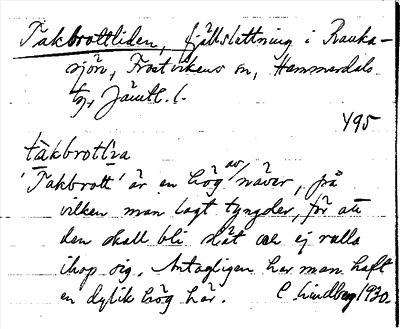 Takbrottliden, fjällslettning i Rauka-
sjön, Frostvikens sn, Hammerdals
tg, Jämtl. l.
495
takbrottḷịa
'Takbrott' är en hög av näver, på
vilken man lagt tyngder, för att
den skall bli slät och ej rulla
ihop sig. Antagligen har man haft
en dylik hög här. C Lindberg 1930.